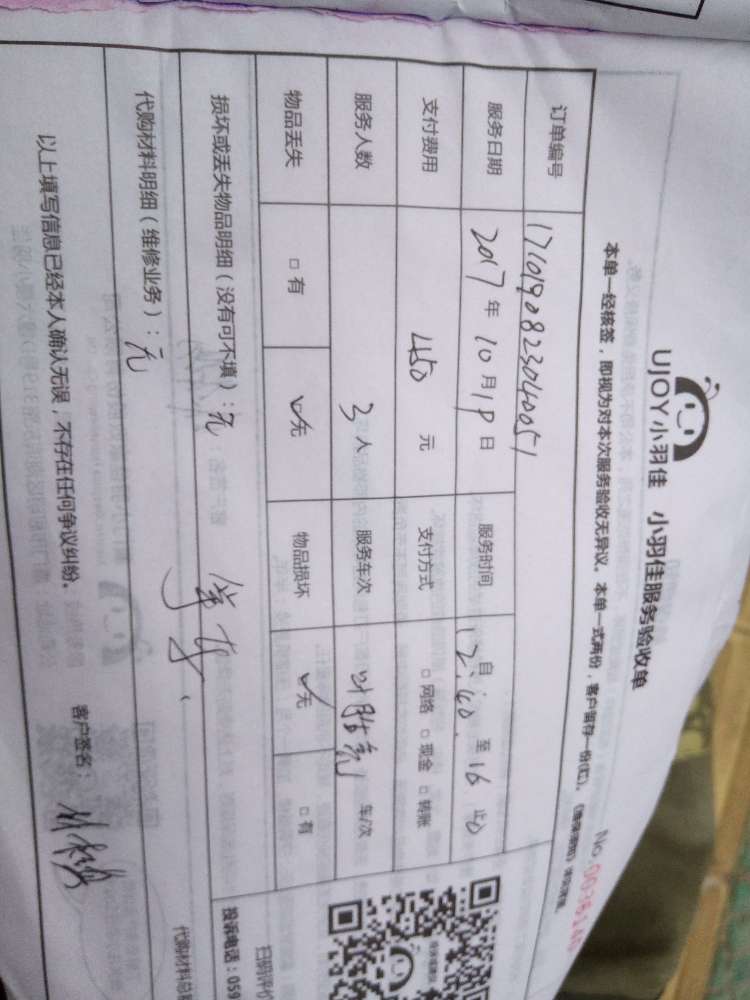 UJOY小羽佳 小羽佳服务验收单
No.
本单一经核签，即视为对本次服务验收无异议。本单一式两份，客户留存一份(红)。
订单编号
服务日期 2017 年 10 月 19 日 服务时间 自 12:40 至 16 止
支付费用 450 元 支付方式 □网络 □现金 □转账
服务人数 3 人 服务车次 叶胜亮 车/次
物品丢失 □有 ☑无 物品损坏 ☑无 □有
损坏或丢失物品明细（没有可不填）：无
代购材料明细（维修业务）：无
扫码评价
投诉电话：059
代购材料总
以上填写信息已经本人确认无误，不存在任何争议纠纷。 客户签名：